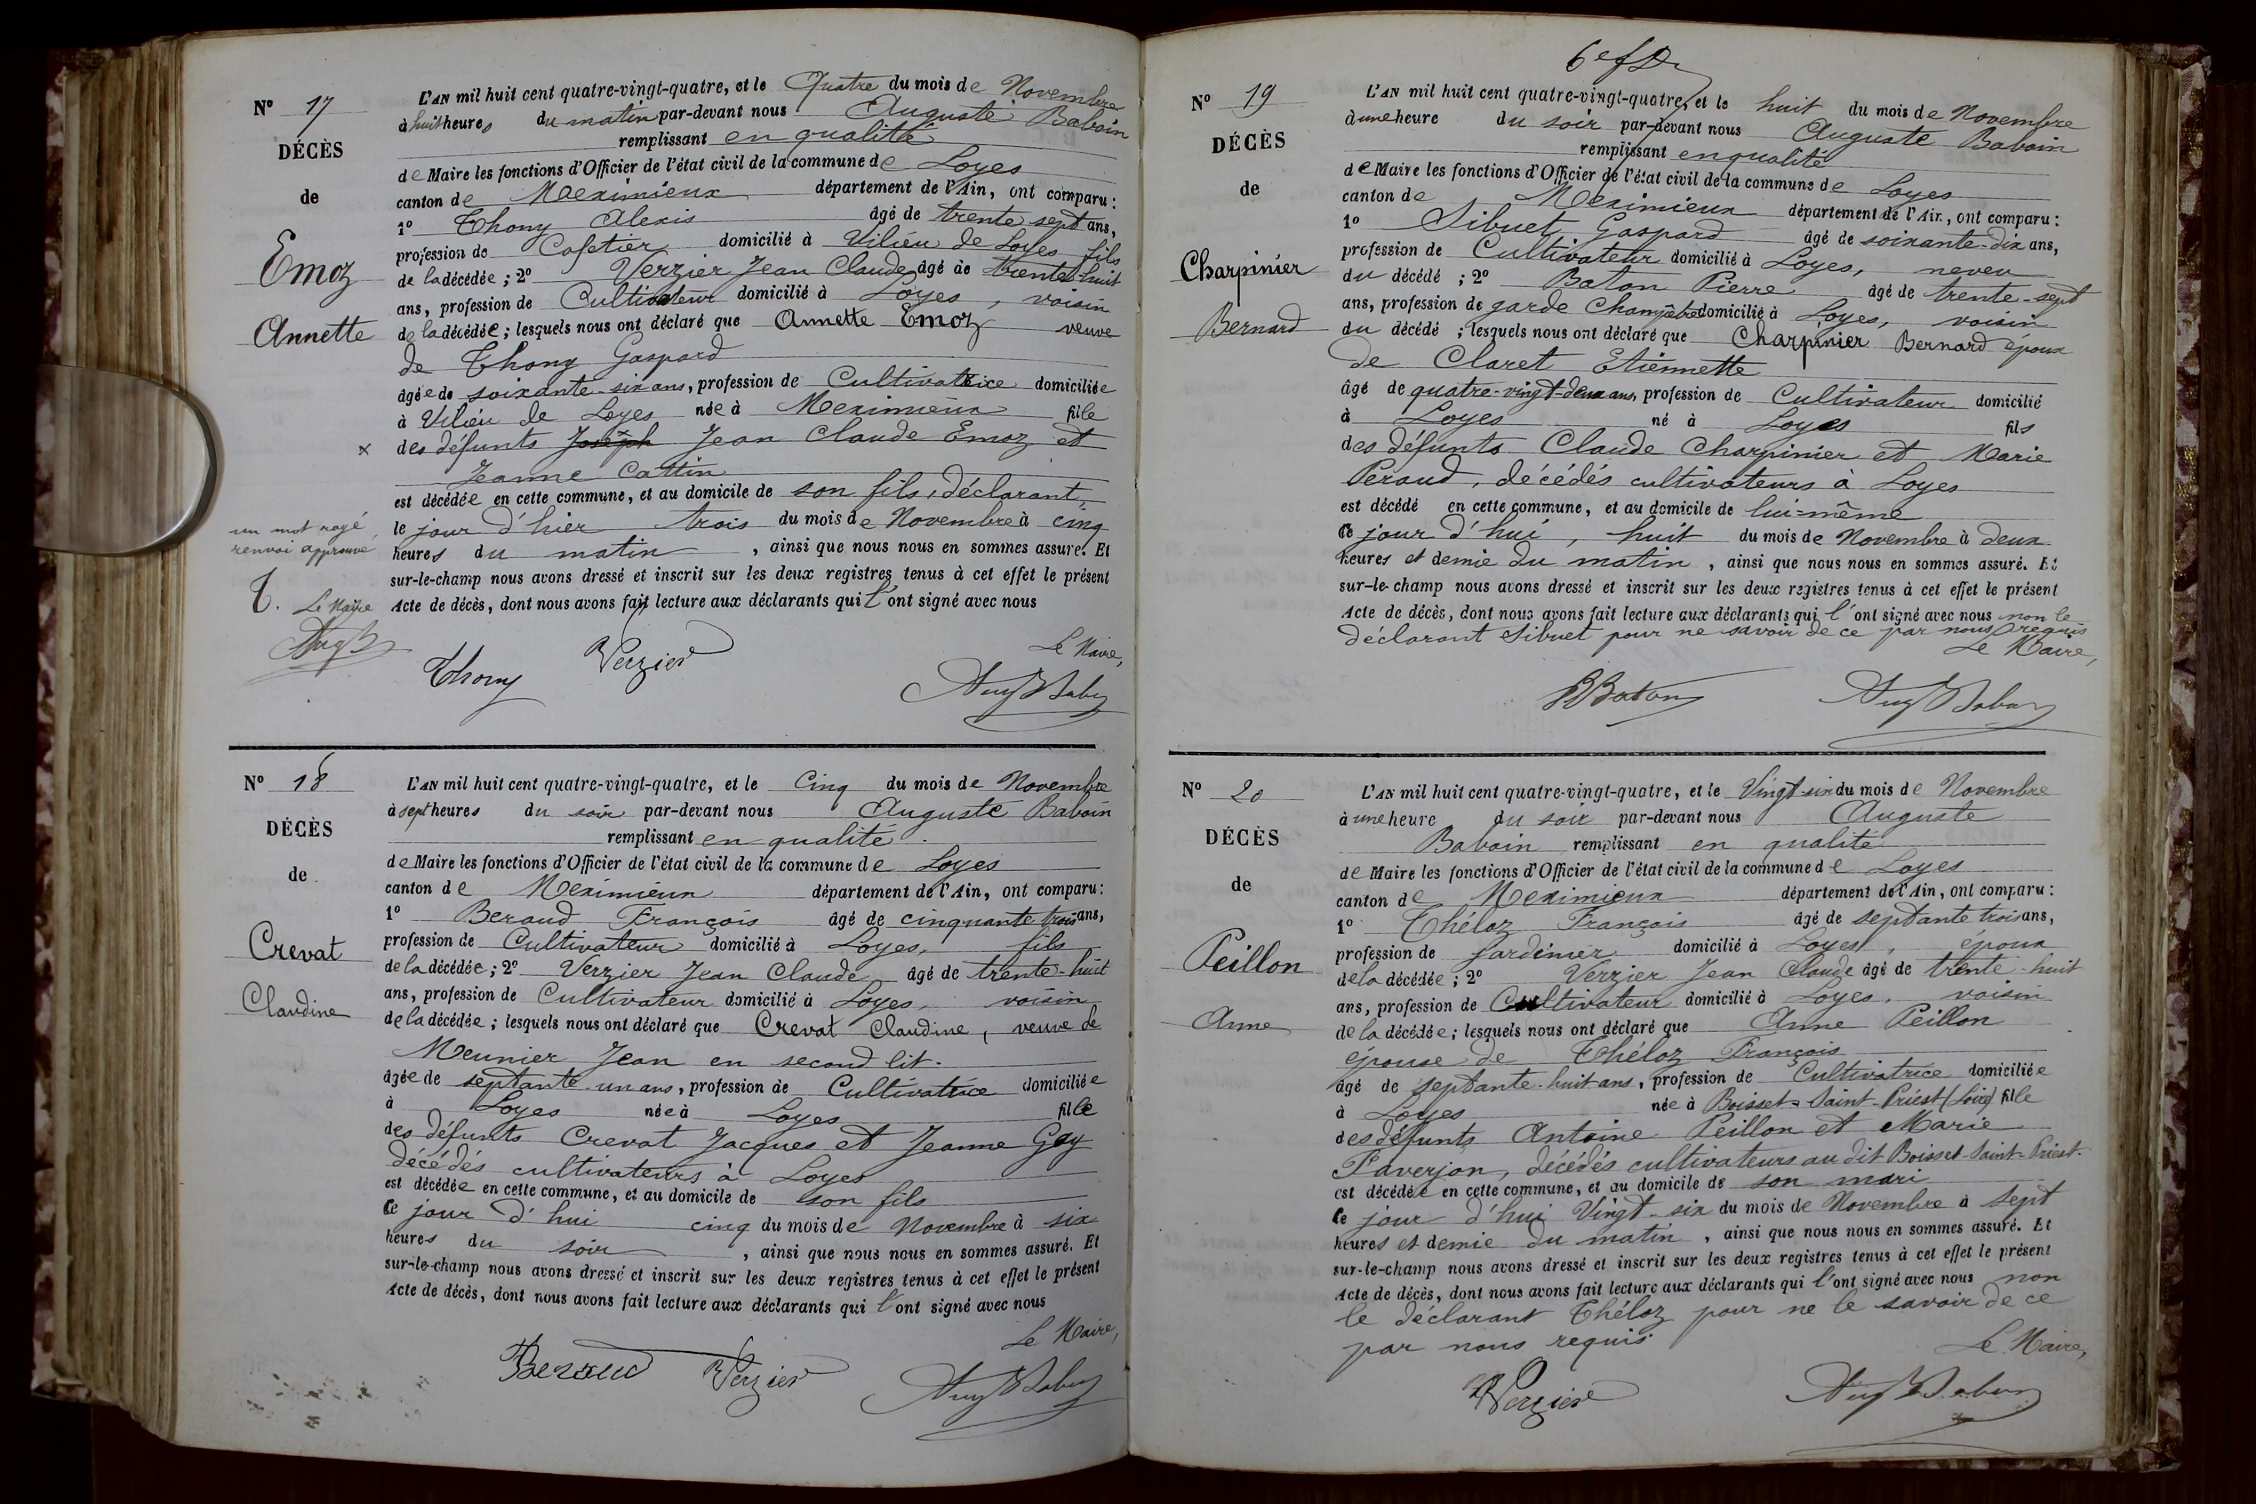 N° 17
DÉCÈS
de
Emoz
Annette
L'AN mil huit cent quatre-vingt-quatre, et le Quatre du mois de Novembre
à huit heures du matin par-devant nous Auguste Baboin
remplissant en qualité
de Maire les fonctions d'Officier de l'état civil de la commune de Loyes
canton de Meximieux département de l'Ain, ont comparu :
1° Thony Alexis âgé de trente sept ans,
profession de Cafetier domicilié à Vilieu de Loyes fils
de la décédée ; 2° Verzier Jean Claude âgé de trente-huit
ans, profession de Cultivateur domicilié à Loyes, voisin
de la décédée ; lesquels nous ont déclaré que Annette Emoz veuve
de Thony Gaspard
âgée de soixante-six ans, profession de Cultivatrice domiciliée
à Vilieu de Loyes née à Meximieux fille
x des défunts Joseph Jean Claude Emoz et
Jeanne Cattin
est décédée en cette commune, et au domicile de son fils, déclarant,
le jour d'hier trois du mois de Novembre à cinq
heures du matin, ainsi que nous nous en sommes assuré. Et
sur-le-champ nous avons dressé et inscrit sur les deux registres tenus à cet effet le présent
Acte de décès, dont nous avons fait lecture aux déclarants qui l'ont signé avec nous
un mot rayé,
renvoi approuvé
T. Le Maire
Aug B
Le Maire,
Thony Verzier Aug Baboin
N° 18
DÉCÈS
de
Crevat
Claudine
L'AN mil huit cent quatre-vingt-quatre, et le Cinq du mois de Novembre
à sept heures du soir par-devant nous Auguste Baboin
remplissant en qualité
de Maire les fonctions d'Officier de l'état civil de la commune de Loyes
canton de Meximieux département de l'Ain, ont comparu :
1° Beraud François âgé de cinquante trois ans,
profession de Cultivateur domicilié à Loyes, fils
de la décédée ; 2° Verzier Jean Claude âgé de trente-huit
ans, profession de Cultivateur domicilié à Loyes, voisin
de la décédée ; lesquels nous ont déclaré que Crevat Claudine, veuve de
Meunier Jean en second lit.
âgée de septante-un ans, profession de Cultivatrice domiciliée
à Loyes née à Loyes fille
des défunts Crevat Jacques et Jeanne Gay
décédés cultivateurs à Loyes
est décédée en cette commune, et au domicile de son fils
Ce jour d'hui cinq du mois de Novembre à six
heures du soir, ainsi que nous nous en sommes assuré. Et
sur-le-champ nous avons dressé et inscrit sur les deux registres tenus à cet effet le présent
Acte de décès, dont nous avons fait lecture aux déclarants qui l'ont signé avec nous
Le Maire,
Beraud Verzier Aug Baboin
N° 19
DÉCÈS
de
Charpinier
Bernard
L'AN mil huit cent quatre-vingt-quatre, et le huit du mois de Novembre
d'une heure du soir par-devant nous Auguste Baboin
remplissant en qualité
de Maire les fonctions d'Officier de l'état civil de la commune de Loyes
canton de Meximieux département de l'Ain, ont comparu :
1° Sibuet Gaspard âgé de soixante-dix ans,
profession de Cultivateur domicilié à Loyes, neveu
du décédé ; 2° Baton Pierre âgé de trente-sept
ans, profession de garde Champêtre domicilié à Loyes, voisin
du décédé ; lesquels nous ont déclaré que Charpinier Bernard époux
de Claret Etiennette
âgé de quatre-vingt-deux ans, profession de Cultivateur domicilié
à Loyes né à Loyes fils
des défunts Claude Charpinier et Marie
Peraud, décédés cultivateurs à Loyes
est décédé en cette commune, et au domicile de lui-même
Ce jour d'hui, huit du mois de Novembre à deux
heures et demie du matin, ainsi que nous nous en sommes assuré. Et
sur-le-champ nous avons dressé et inscrit sur les deux registres tenus à cet effet le présent
Acte de décès, dont nous avons fait lecture aux déclarants qui l'ont signé avec nous non le
déclarant Sibuet pour ne savoir de ce par nous requis
Le Maire,
Baton Aug Baboin
N° 20
DÉCÈS
de
Peillon
Anne
L'AN mil huit cent quatre-vingt-quatre, et le Vingt-six du mois de Novembre
à une heure du soir par-devant nous Auguste
Baboin remplissant en qualité
de Maire les fonctions d'Officier de l'état civil de la commune de Loyes
canton de Meximieux département de l'Ain, ont comparu :
1° Théloz François âgé de septante trois ans,
profession de Jardinier domicilié à Loyes, époux
de la décédée ; 2° Verzier Jean Claude âgé de trente-huit
ans, profession de Cultivateur domicilié à Loyes, voisin
de la décédée ; lesquels nous ont déclaré que Anne Peillon
épouse de Théloz François
âgé de septante-huit ans, profession de Cultivatrice domiciliée
à Loyes née à Boisset-Saint-Priest (Loire) fille
des défunts Antoine Peillon et Marie
Faverjon, décédés cultivateurs au dit Boisset-Saint-Priest.
est décédée en cette commune, et au domicile de son mari
Ce jour d'hui Vingt-six du mois de Novembre à sept
heures et demie du matin, ainsi que nous nous en sommes assuré. Et
sur-le-champ nous avons dressé et inscrit sur les deux registres tenus à cet effet le présent
Acte de décès, dont nous avons fait lecture aux déclarants qui l'ont signé avec nous non
le déclarant Théloz pour ne le savoir de ce
par nous requis
Le Maire,
Verzier Aug Baboin